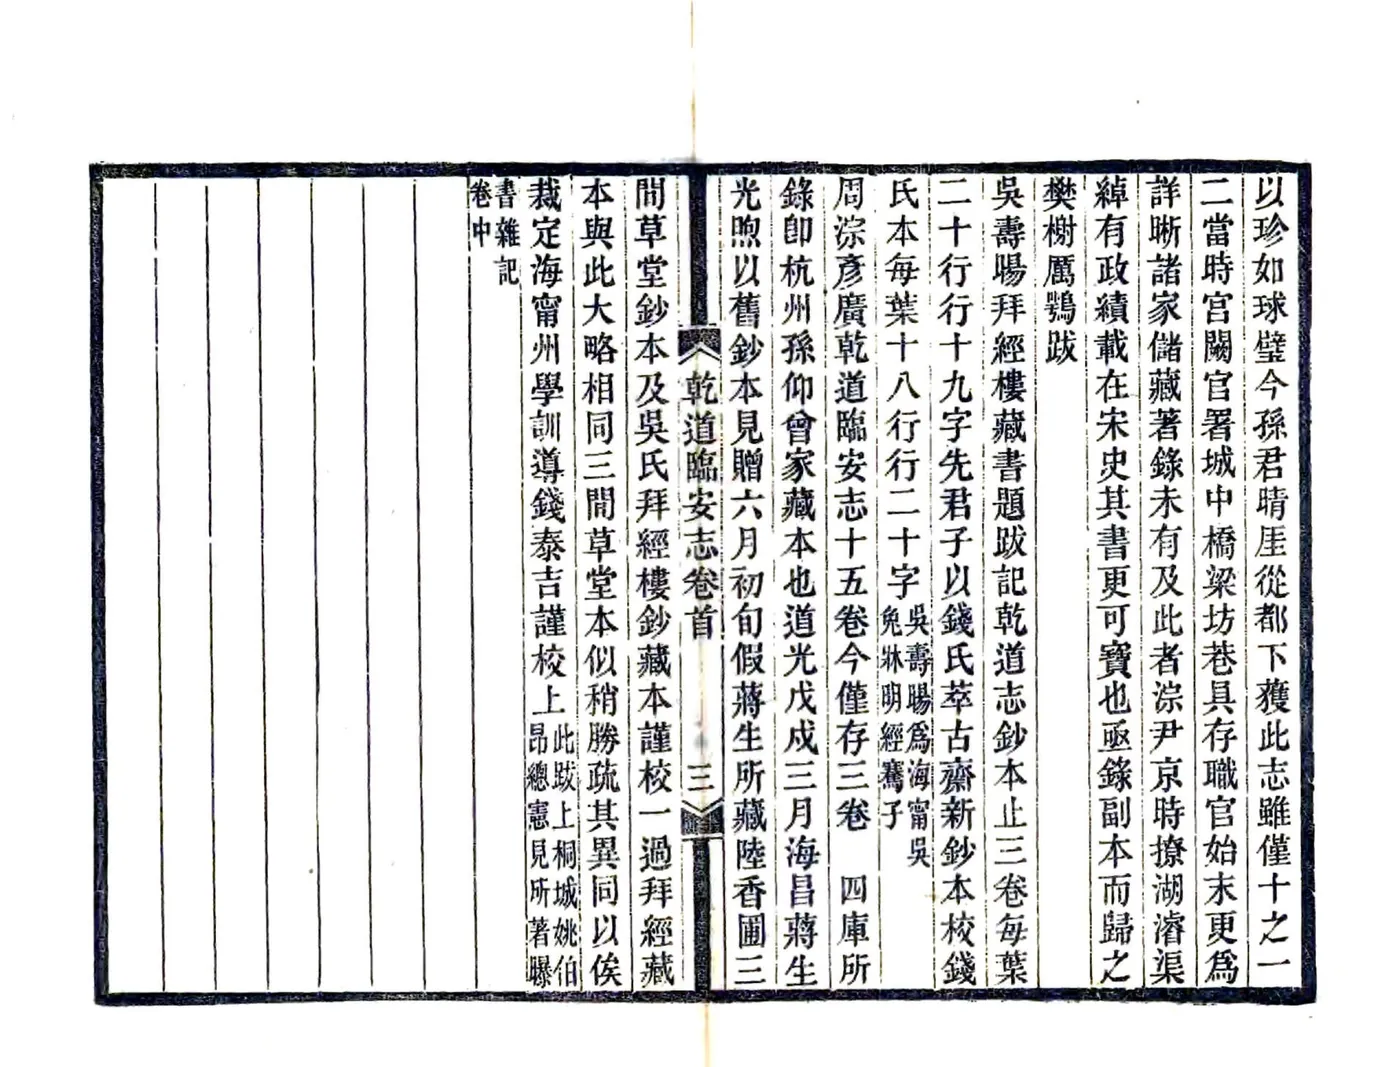 以珍如球璧今孫君晴厓從都下獲此志雖僅十之一
二當時宮闕官署城中橋梁坊巷具存職官始末更爲
詳晰諸家儲藏著錄未有及此者淙尹京時撩湖濬渠
綽有政績載在宋史其書更可寶也亟錄副本而歸之
樊榭厲鶚跋
吳壽暘拜經樓藏書題跋記乾道志鈔本止三卷每葉
二十行行十九字先君子以錢氏萃古齋新鈔本校錢
氏本每葉十八行行二十字
吳壽暘爲海甯吳
兔牀明經騫子
周淙彥廣乾道臨安志十五卷今僅存三卷　四庫所
錄卽杭州孫仰曾家藏本也道光戊戌三月海昌蔣生
光煦以舊鈔本見贈六月初旬假蔣生所藏陸香圃三
乾道臨安志卷首　三
間草堂鈔本及吳氏拜經樓鈔藏本謹校一過拜經藏
本與此大略相同三間草堂本似稍勝疏其異同以俟
裁定海甯州學訓導錢泰吉謹校上
此跋上桐城姚伯
昂總憲見所著曝
書雜記
卷中